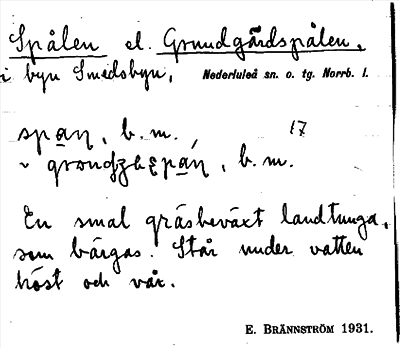 Spålen el. Grundgårdspålen,
i byn Smedsbyn, Nederluleå sn. o. tg. Norrb. l.
b. m. 17
b. m.
En smal gräsbeväxt landtunga,
som bärgas. Står under vatten
höst och vår.
E. BRÄNNSTRÖM 1931.